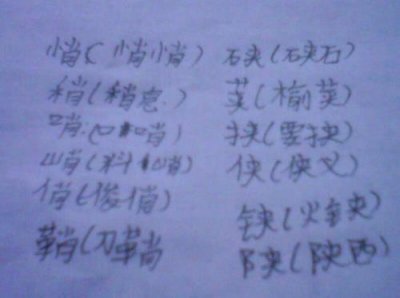 悄(悄悄) 硖(硖石)
稍(稍息) 荚(榆荚)
哨(口哨) 挟(要挟)
峭(料峭) 侠(侠义)
俏(俊俏) 铗(火铗)
鞘(刀鞘 陕(陕西)